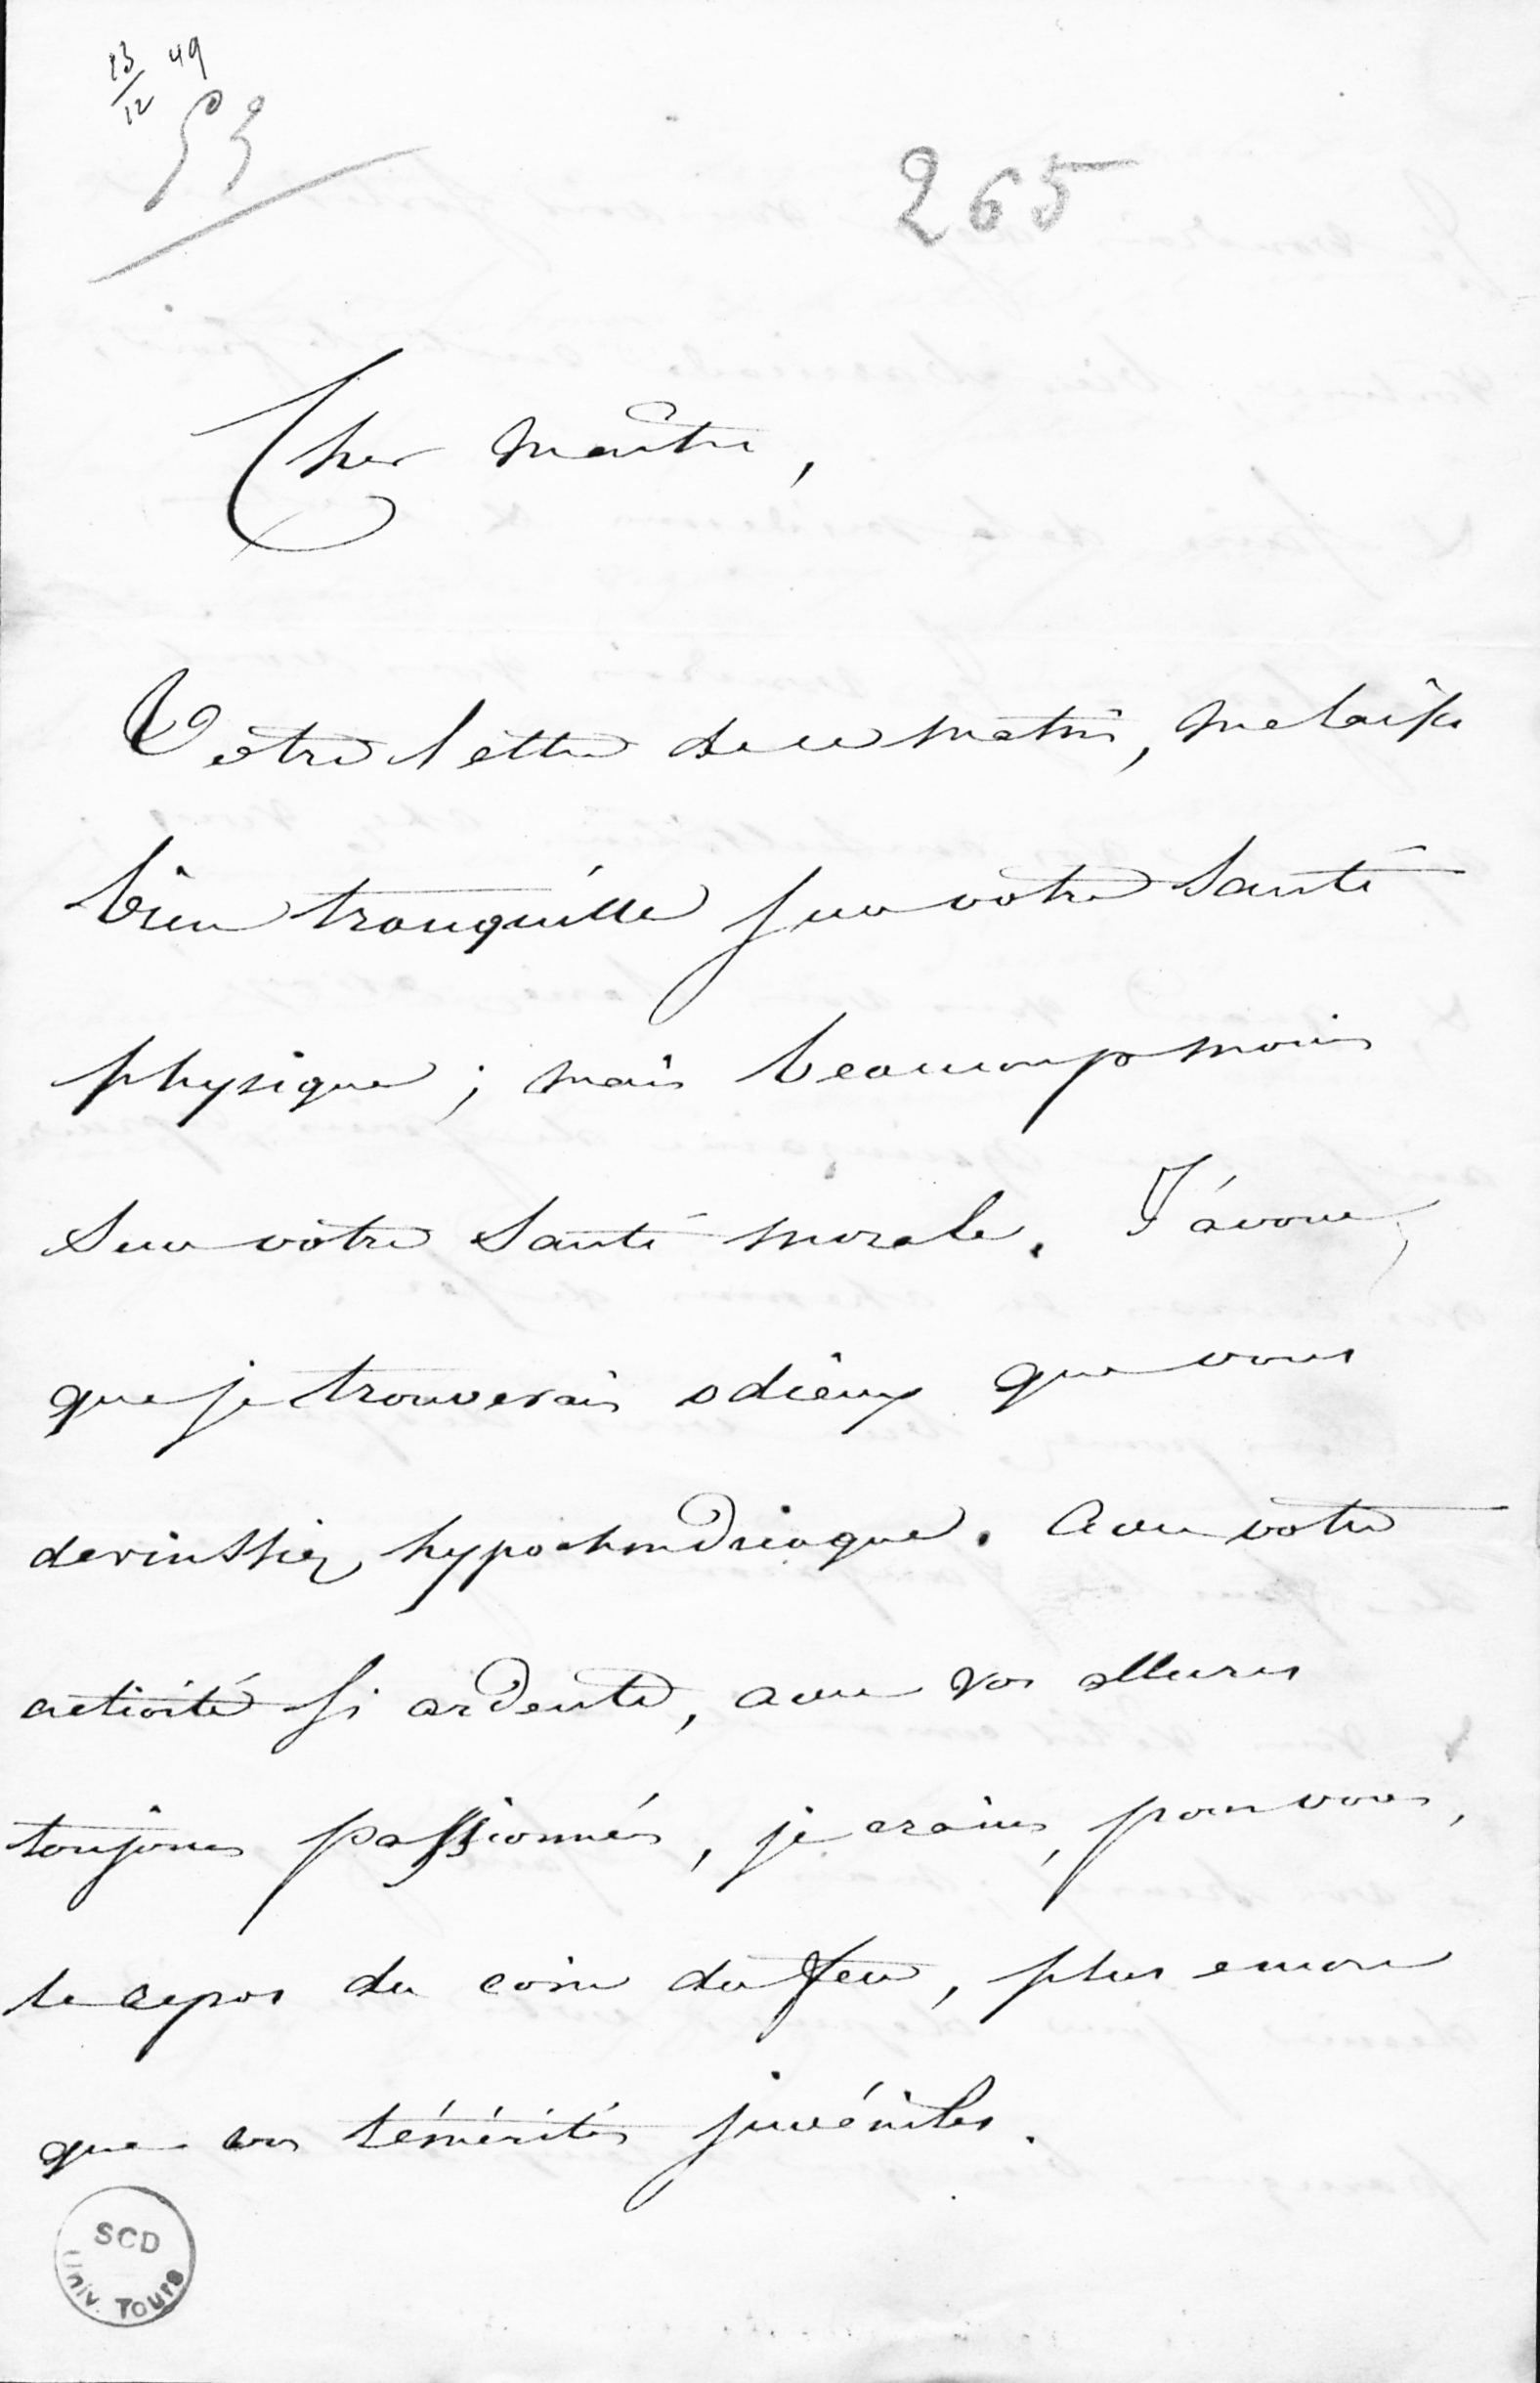 23/12 49
53
265
Cher maître,
Votre lettre de ce matin, me laisse
bien tranquille sur votre santé
physique ; mais beaucoup moins
sur votre santé morale. J'avoue,
que je trouverais odieux que vous
devinssiez hypochondriaque. Avec votre
activité si ardente, avec vos allures
toujours passionnées, je crains, pour vous,
le repos du coin du feu, plus encore
que vos témérités juvéniles.
SCD
Univ. Tours